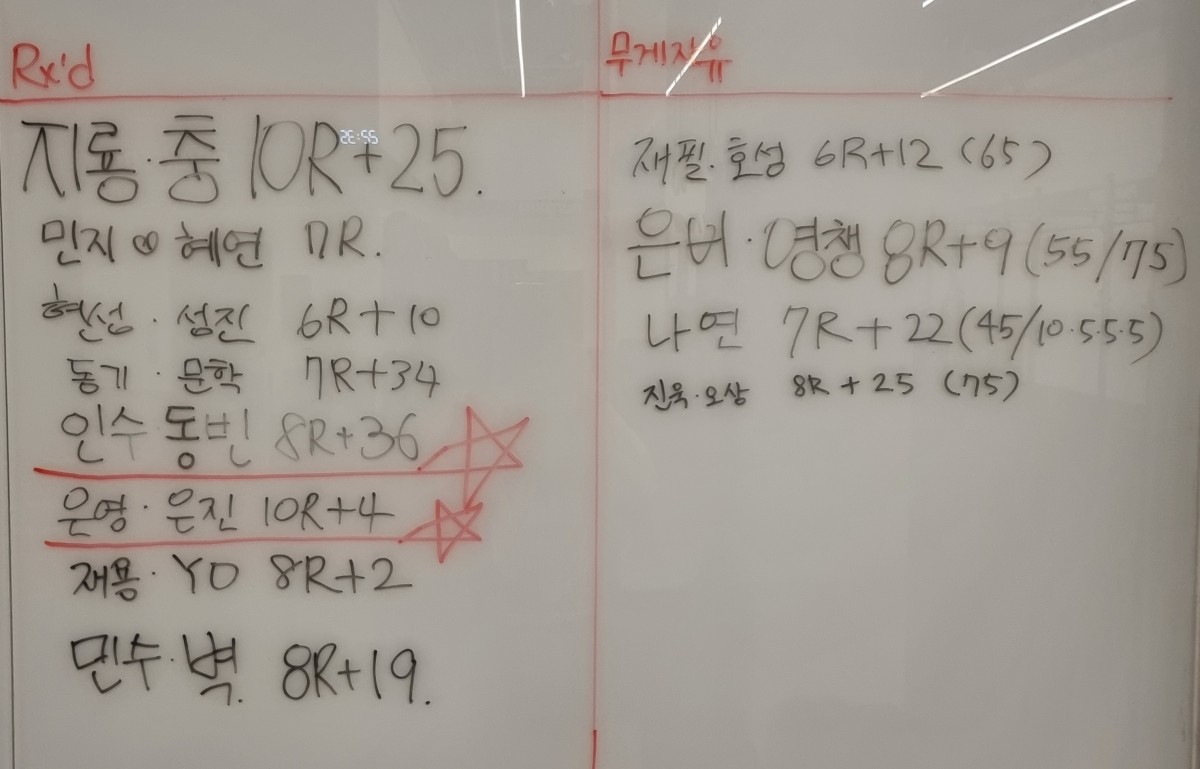 Rx'd
지룡·충 10R+25.
민지 ♡ 혜연 7R.
현선·성진 6R+10
동기·문학 7R+34
인수 동빈 8R+36
은영·은진 10R+4
재용·YO 8R+2
민수·벽. 8R+19.
무게자유
재필·호성 6R+12 (65)
은버·영챙 8R+9 (55/75)
나연 7R+22 (45/10·5·5·5)
진욱·오상 8R+25 (75)